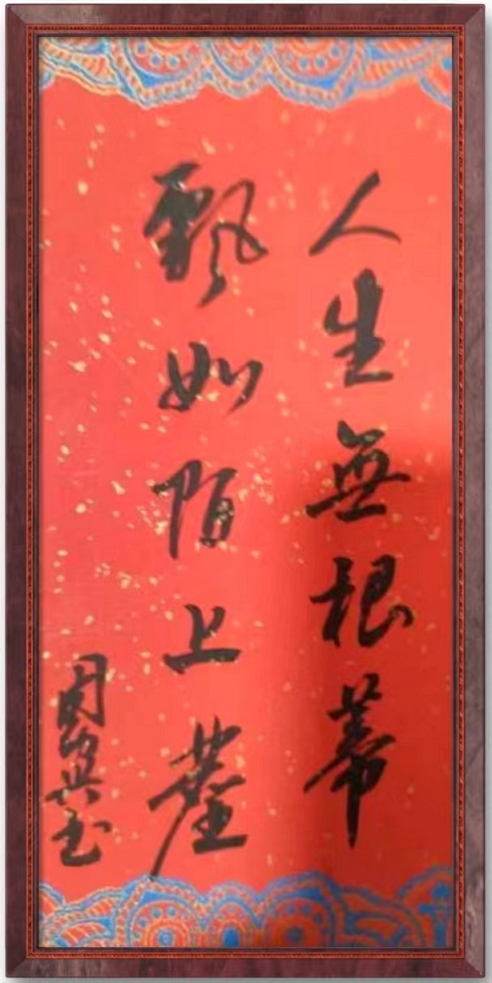 人生無根蒂
飄如陌上塵